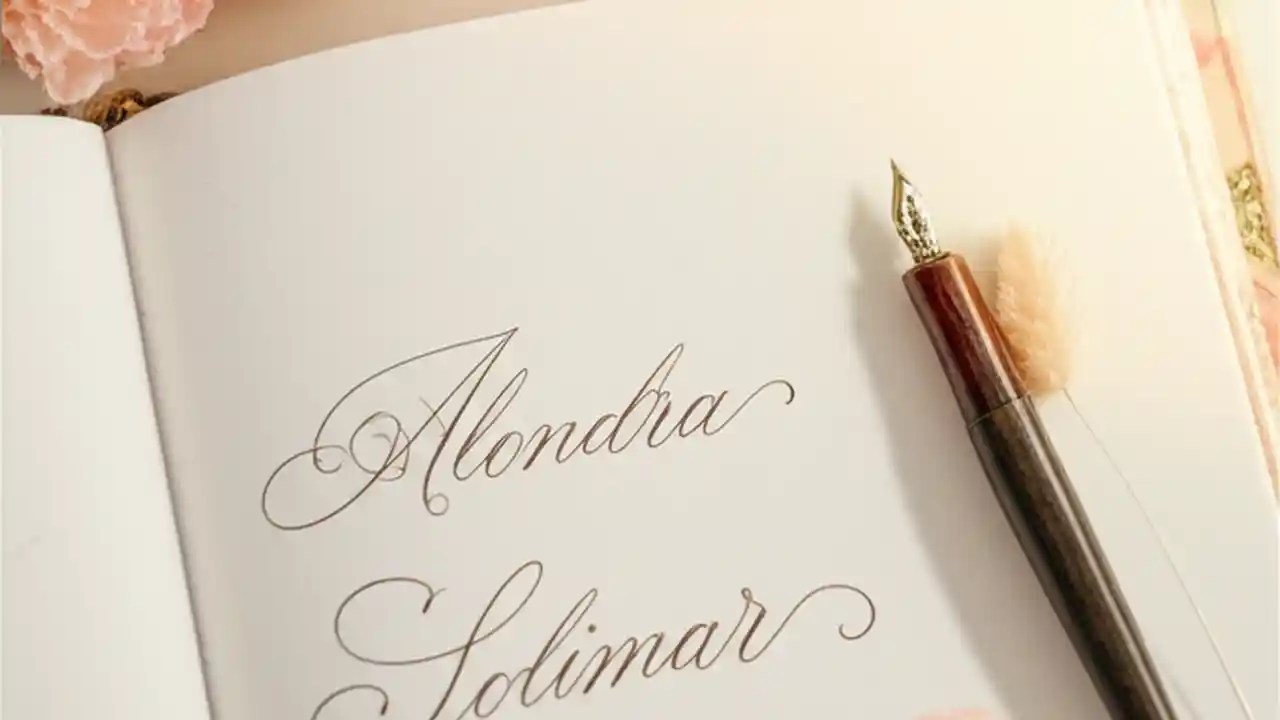 Alondra
Solimar